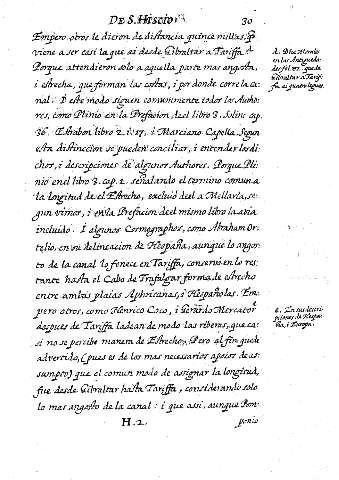 DE S. HISCIO. 30
Empero otros le dieron de distancia quince millas. I
viene a ser casi la que ai desde Gibraltar a Tariffa.
Porque attendieron solo a aquella parte mas angosta,
i estrecha, que forman las costas, i por donde corre la ca-
nal: I este modo siguen comunmente todos los Autho-
res, como Plinio en la Prefacion del libro 3. Solino cap.
36. Estrabon libro 2. i 17, i Marciano Capella. Segun
esta distincion se pueden conciliar, i entender los di-
chos, i descripciones de algunos Authores. Porque Pli-
nio en el libro 3. cap. 1. señalando el termino comun a
la longitud de el Estrecho, excluiò de el a Mellaria, se-
gun vimos, i en la Prefacion de el mismo libro la avia
incluido. I algunos Cosmographos, como Abraham Or-
telio, en su delineacion de Hespaña, aunque lo angos-
to de la canal lo fenece en Tariffa, conservò en lo res-
tante hasta el Cabo de Trafalgar, forma de estrecho
entre ambas plaias Aphricanas, i Hespañolas. Em-
pero otros, como Henrico Coco, i Gerardo Mercator
despues de Tariffa ladean de modo las riberas, que ca-
si no se percibe manera de Estrecho. Pero al fin quede
advertido, (pues es de los mas necesarios apoios de as-
sumpto) que el comun modo de assignar la longitud,
fue desde Gibraltar hasta Tariffa, considerando solo
lo mas angosto de la canal: i que assi, aunque Pon-
H. 2. ponio
en las Antigueda-
des fol. que de
Gibraltar a Tarif-
fa ai quatro leguas.
e. En sus descri-
pciones de Hespa-
ña, i Europa.